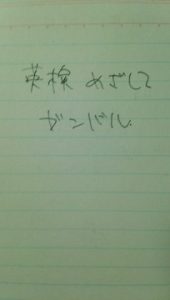 英検 めざして
ガンバル.